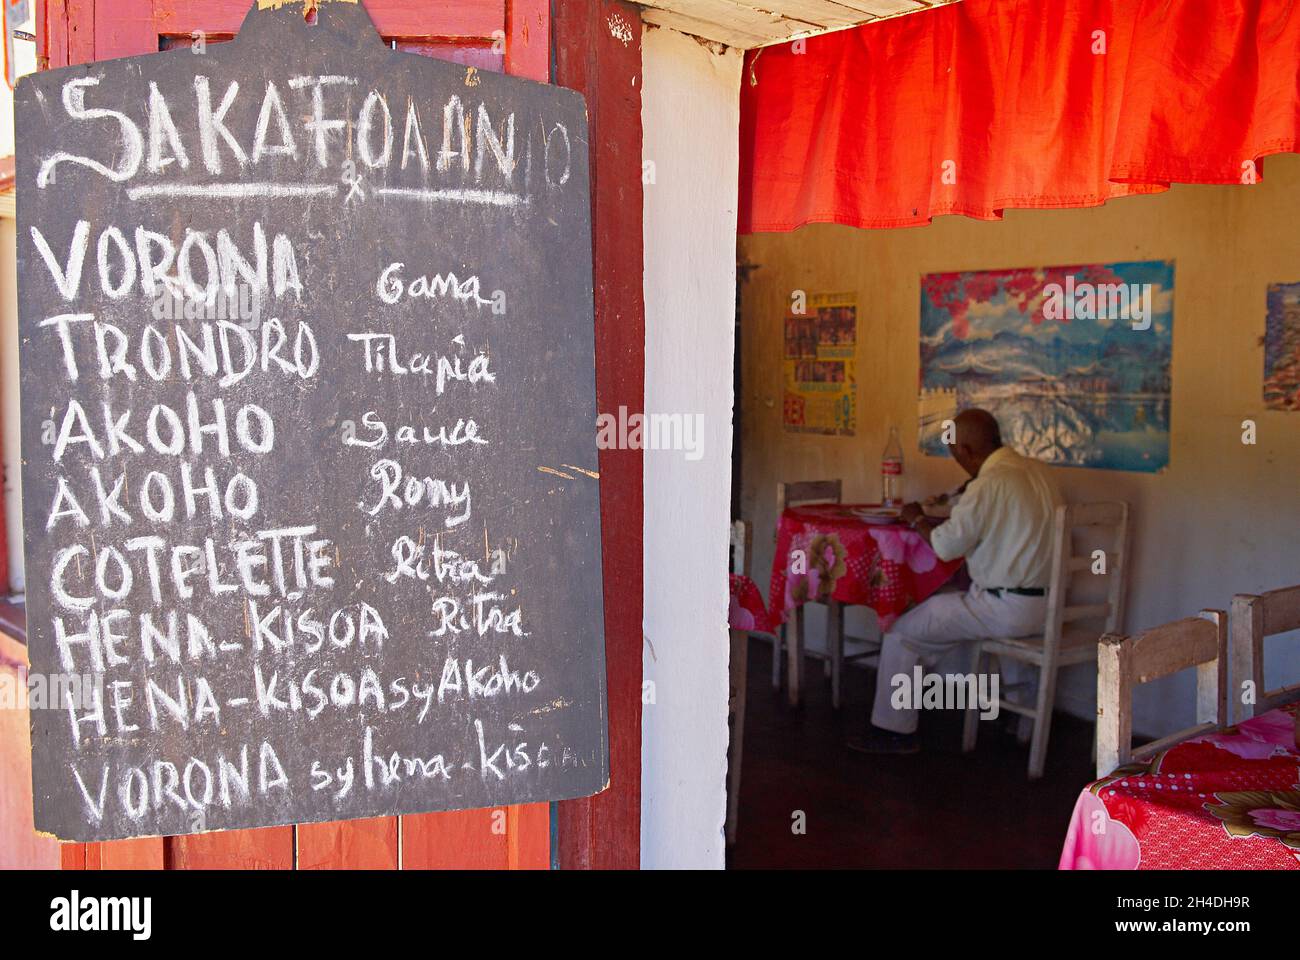 SAKAFOAAN
x
VORONA Gama
TRONDRO Tilapia
AKOHO Sauce
AKOHO Rony
COTELETTE Ritra
HENA-KISOA Ritra
HENA-KISOA sy Akoho
VORONA sy hena-kisoa
REX
alamy
Image ID: 2H4DH9R
www.alamy.com